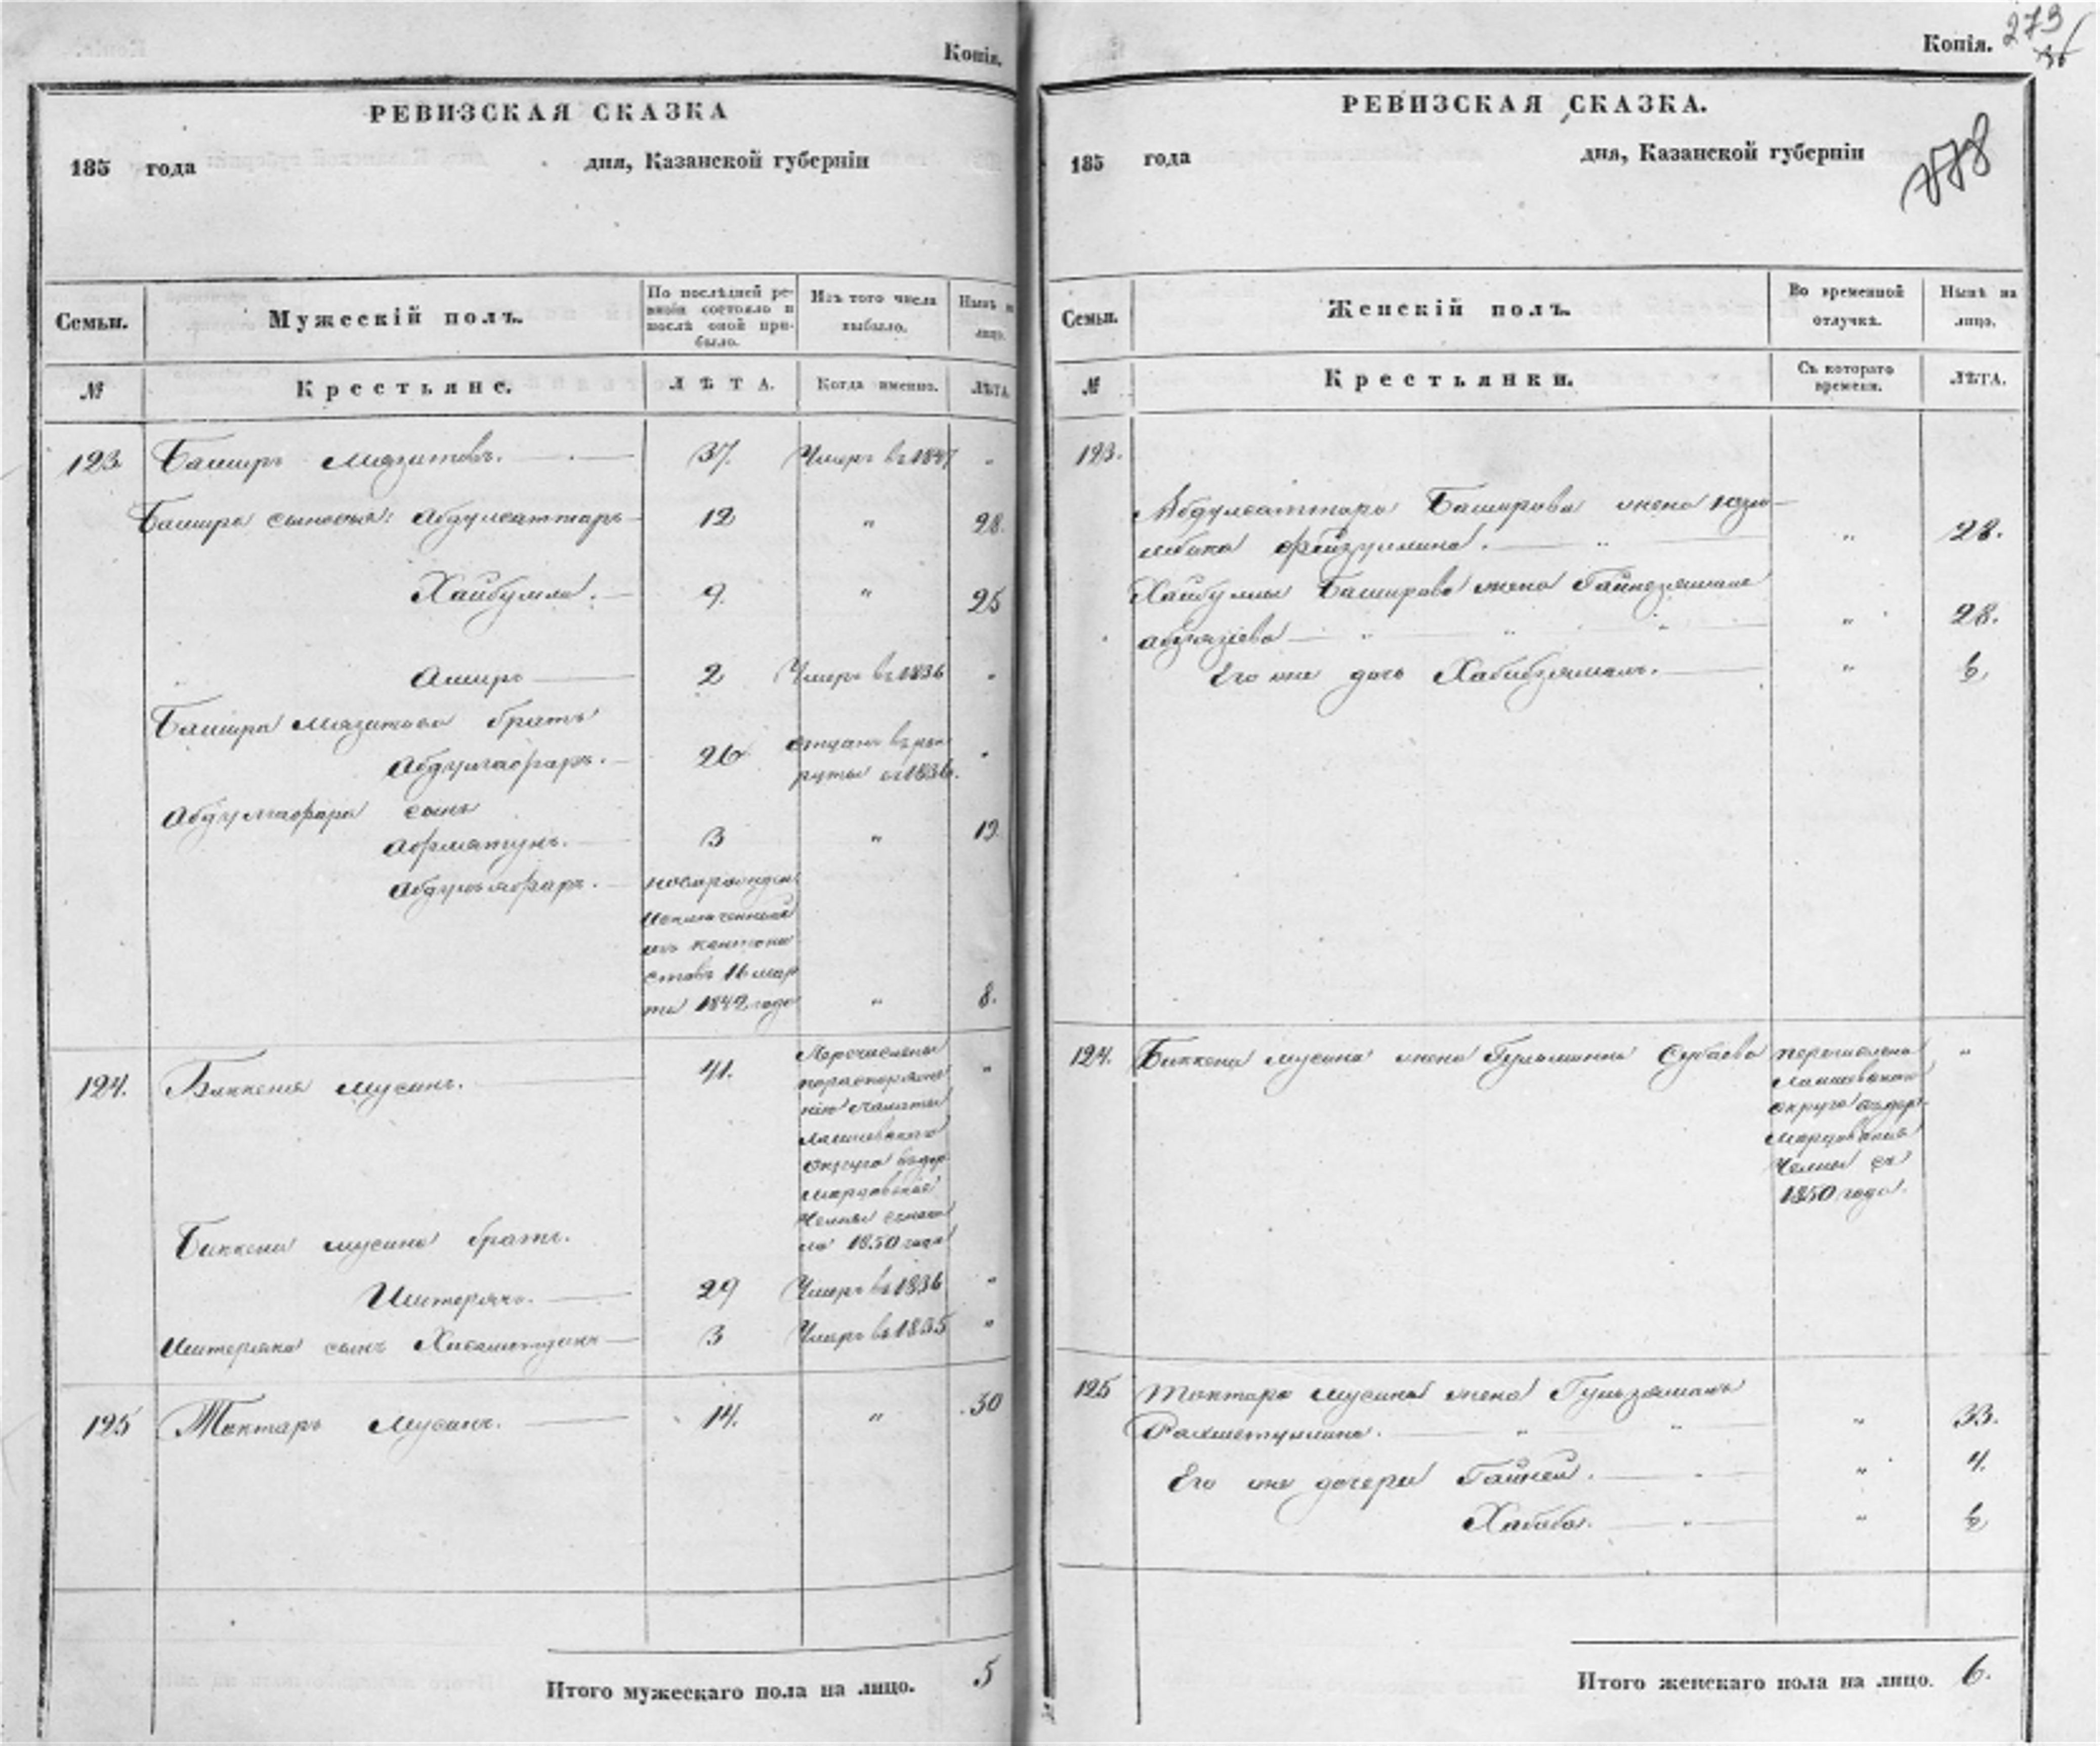 Копія.
РЕВИЗСКАЯ СКАЗКА
185 года дня, Казанской губерніи
Семьи.
Мужескій полъ.
По послѣдней ре-
визіи состояло и
послѣ оной при-
было.
Изъ того числа
выбыло.
Нынѣ на
лицо.
№
Крестьяне.
ЛѢТА.
Когда именно.
ЛѢТА.
123 Баширъ Мязитовъ. 37. Умеръ въ 1847 "
Башира сыновья: Абдулсаттаръ 12 " 28.
Хайбулла. 9. " 25
Аширъ 2 Умеръ въ 1836 "
Башира Мязитова братъ
Абдулгафаръ. 26 отданъ въ рек
руты въ 1836. "
Абдулгафара сынъ
3 " 19.
Абдулгафаръ.
Исключенный
изъ кантони
стовъ 16 мар
та 1842 года " 8.
124. Биккеня Мусинъ. 41. Перечислены "
по распоряже
нію Палаты
Лаишевскаго
округа въ дер
Мордовские
Челны
1850 года
Биккени Мусина братъ.
Иштерякъ. 29 Умеръ въ 1836 "
Иштеряка сынъ 3 Умеръ въ 1835 "
125 Токтаръ Мусинъ. 14. " 30
Итого мужескаго пола на лицо. 5
Копія. 273
РЕВИЗСКАЯ СКАЗКА.
185 года дня, Казанской губерніи
278
Семьи.
Женскій полъ.
Во временной
отлучкѣ.
Нынѣ на
лицо.
№
Крестьянки.
Съ котораго
времени.
ЛѢТА.
123.
Абдулсаттара Баширова жена
Фейзуллина. " " 28.
Хайбуллы Баширова жена
" " " " 28.
Его же дочь Хабибзямалъ. " ½
124. Биккени Мусина жена Субаева перечислена "
Лаишевскаго
округа въ дер.
Мордовские
Челны съ
1850 года.
125 Токтара Мусина жена Гульзямалъ
Рахметуллина. " " " 33.
Его же дочери Гайнея. " " 4.
Хабиба. " " ½
Итого женскаго пола на лицо. 6.